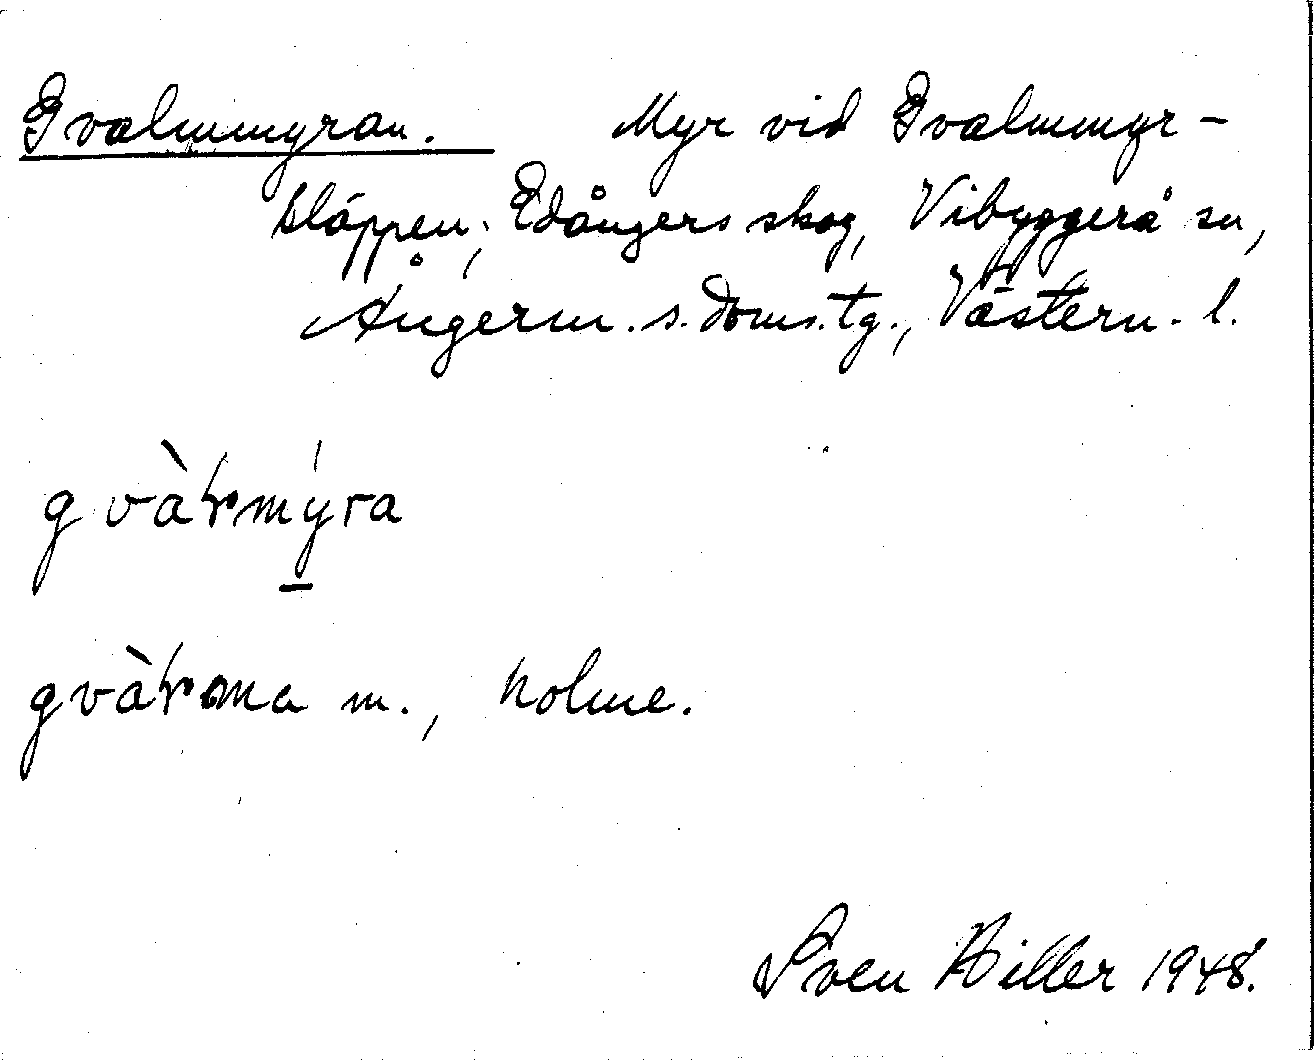 Gvalmmyran. Myr vid Gvalmmyr-
kläppen, Edångers skog, Vibyggerå sn,
Ångerm. s. doms.tg., Västern. l.
gvàɽmýra
gvàɽma m., holme.
Sven Hiller 1948.